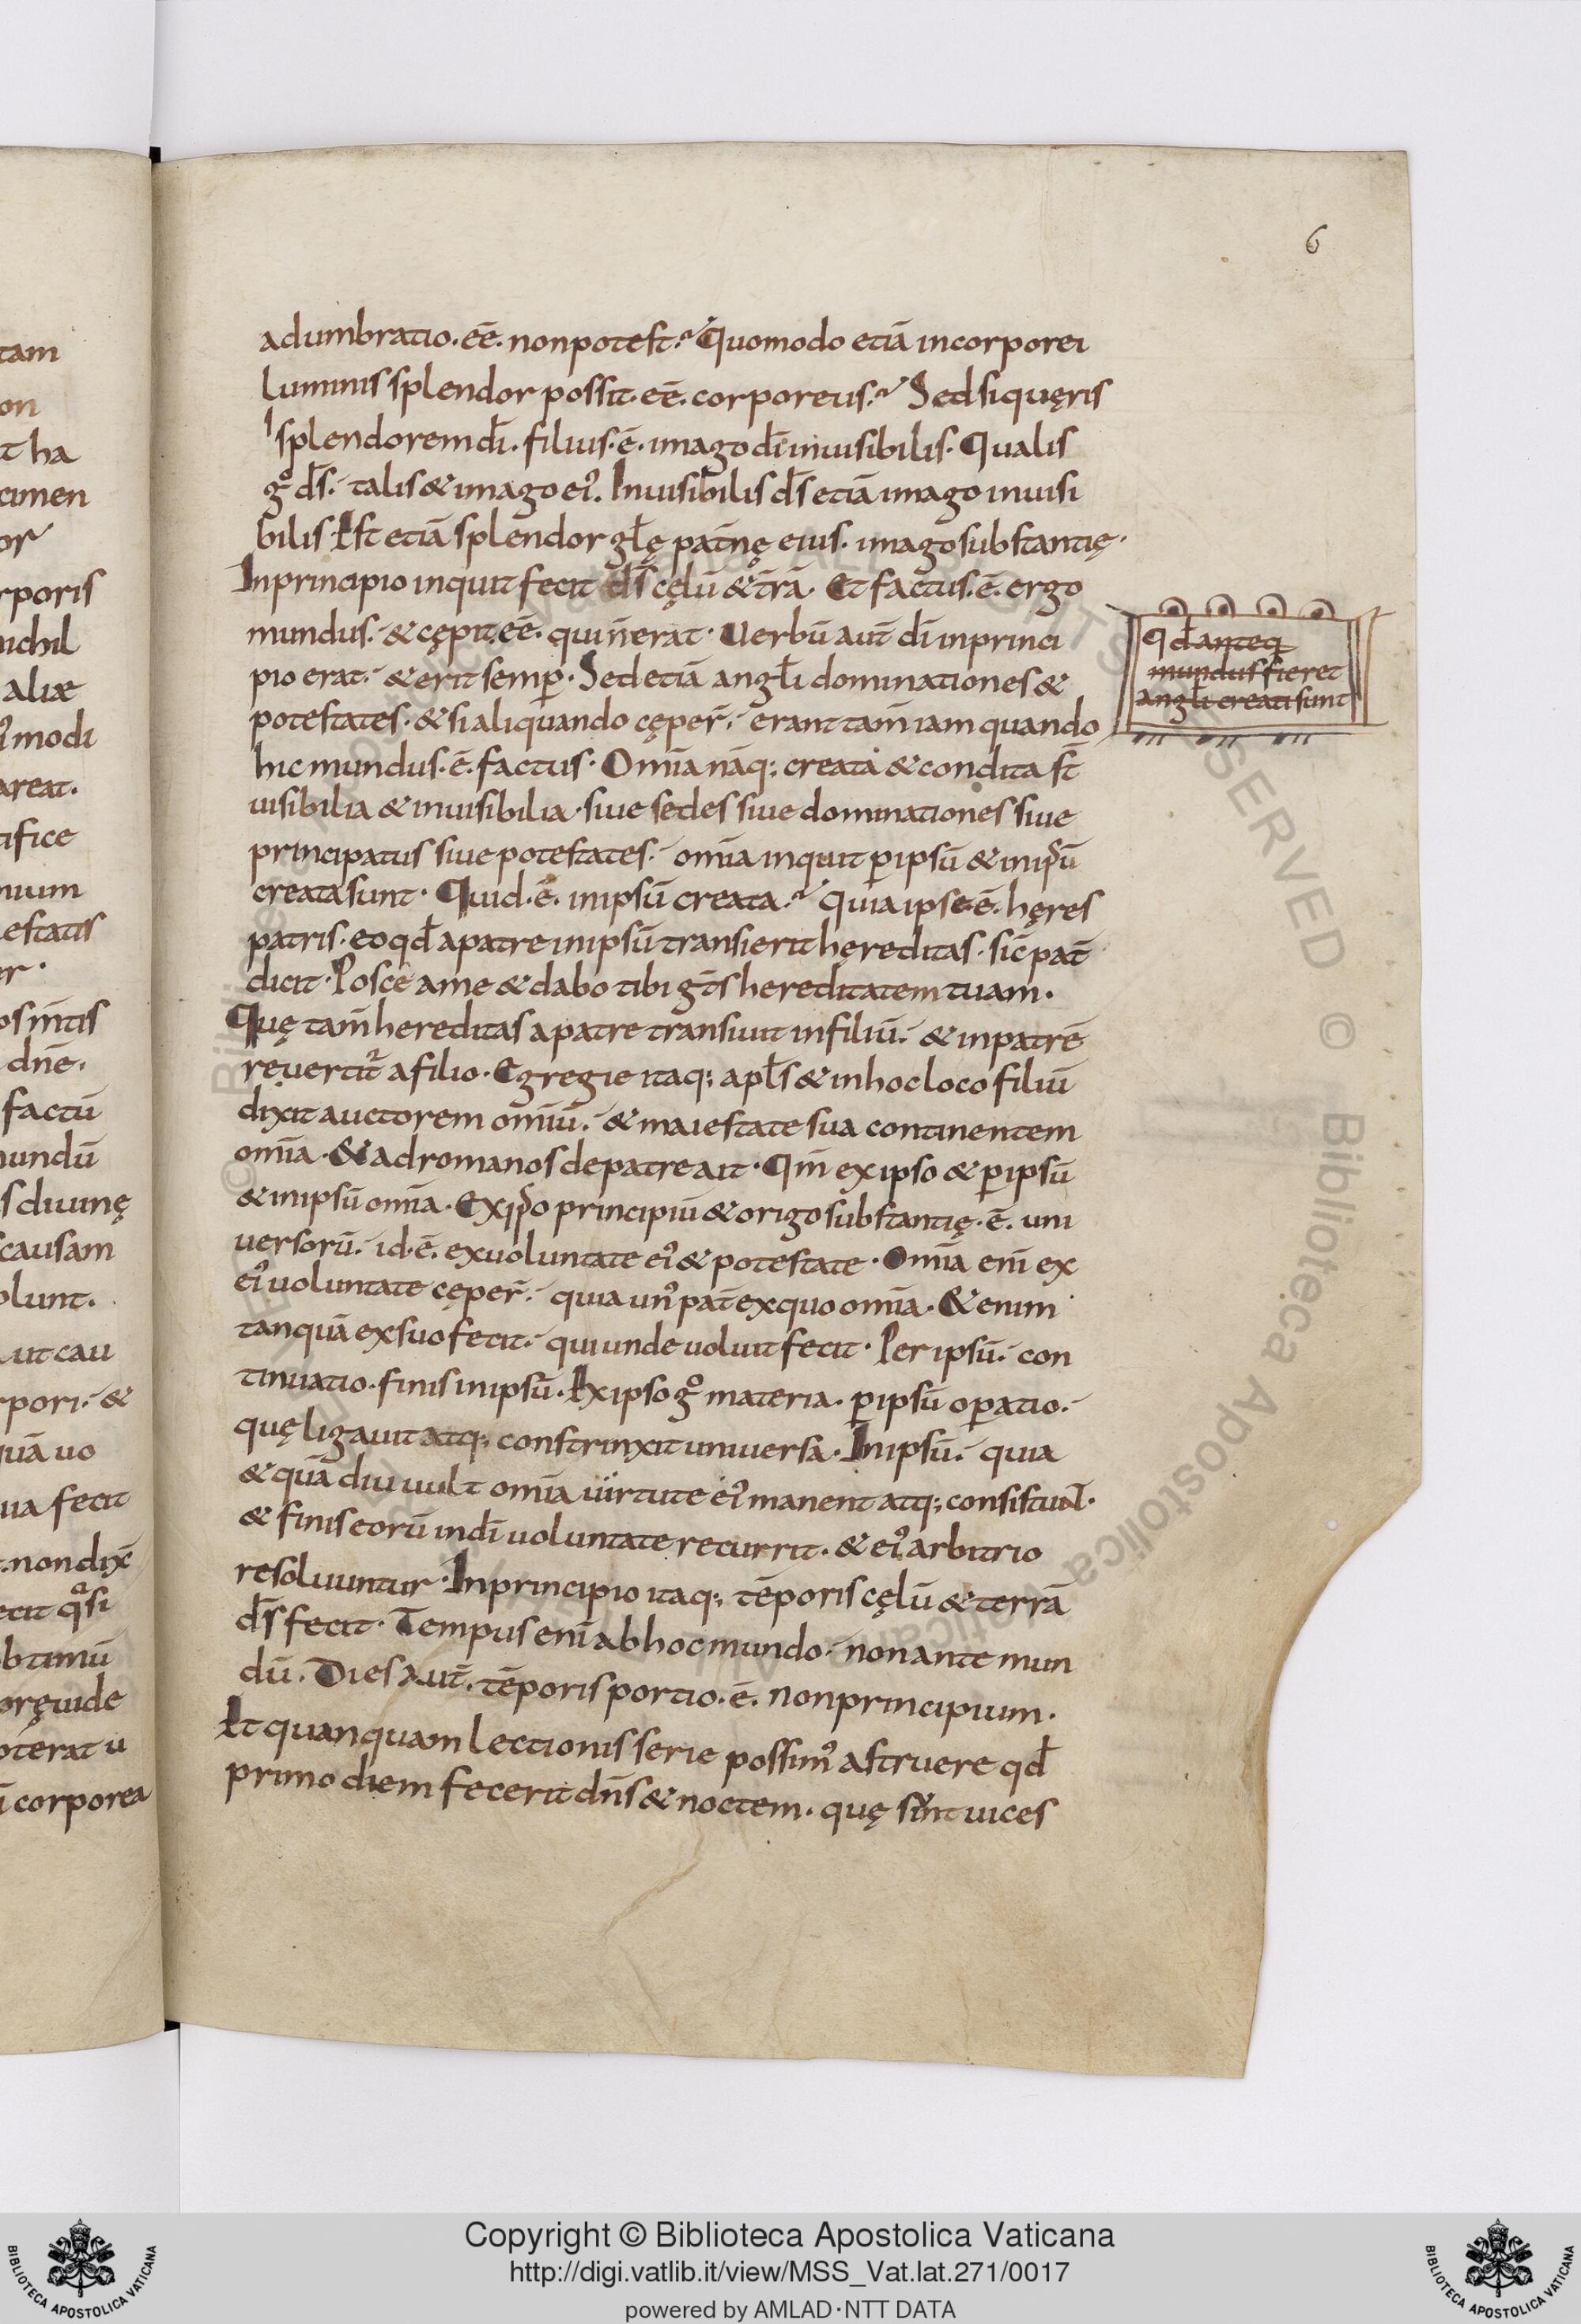 6
adumbratio. eē. non potest. Quomodo etiā incorporei
luminis splendor possit. eē. corporeus. Sed si quęris
splendorem dī. filius. ē. imago dī inuisibilis. Qualis
gͦ ds̄. talis & imago ei᾽. Inuisibilis ds̄ etiā imago inuisi
bilis Est etiā splendor glę patnę eius. imago substantię.
In principio inquit fecit ds̄ cęlū & trā. Et factus. ē. ergo
mundus. & cępit. eē. qui n̄ erat. Uerbū aut̄ dī in princi
pio erat. & erit semꝑ. Sed etiā angłi dominationes &
potestates. & si aliquando cęper̄. erant tam̄ iam quando
hic mundus. ē. factus. Om̄ia nāq; creata & condita st̄
uisibilia & inuisibilia. siue sedes siue dominationes siue
principatus siue potestates. om̄ia inquit ꝑ ipsū & in ip̄ū
creata sunt. Quid. ē. in ipsū creata. Quia ipse. ē. hęres
patris. eo qđ a patre in ipsū transierit hęreditas. sic̄ pat̄
dicit. Posce a me & dabo tibi gt̄s hereditatem tuam.
Quę tam̄ hereditas a patre transiuit in filiū. & in patrē
reuertit᾽ a filio. Egregie itaq; apłs & in hoc loco filiū
dixit auctorem om̄iū. & maiestate sua continentem
om̄ia. & ad romanos de patre ait. Qm̄ ex ipso & ꝑ ipsū
& in ipsū om̄ia. Ex ip̄o principiū & origo substantię. ē. uni
uersorū. id. ē. ex uoluntate ei᾽ & potestate. Om̄ia eni̅ ex
ei᾽ uoluntate cęper̄. quia un᾽ pat̄ ex quo om̄ia. & enim
tanquā ex suo fecit. qui unde uoluit fecit. Per ipsū. con
tinuatio. finis in ipsū. Ex ipso gͦ materia. ꝑ ipsū oꝑatio.
quę ligauit atq; constrinxit uniuersa. In ipsū. quia
& quādiu uult om̄ia uirtute ei᾽ manent atq; consistunt.
& finis eorū in dī uoluntate recurrit. & ei᾽ arbitrio
resoluuntur. In principio itaq; tēporis cęlū & terrā
ds̄ fecit. Tempus eni̅ ab hoc mundo. non ante mun
dū. Dies aut̄. tēporis portio. ē. non principium.
Et quanquam lectionis serie possim᾽ astruere qđ
primo diem fecerit dn̄s & noctem. quę sint uices
Qđ anteq̄
mundus fieret
angłi creati sunt
tam
on
t ha
cimen
or
rporis
nichil
aliæ
i᾽modi
areat.
tifice
nium
estatis
r.
os m̄tis
dn̄e.
factū
undū
s diuinę
causam
olunt.
ut cau
rpori. &
quā uo
ua fecit
. non dix̄
ecit qͣsi
btimū
oręuide
oterat u
i corporea
Copyright © Biblioteca Apostolica Vaticana
http://digi.vatlib.it/view/MSS_Vat.lat.271/0017
powered by AMLAD·NTT DATA